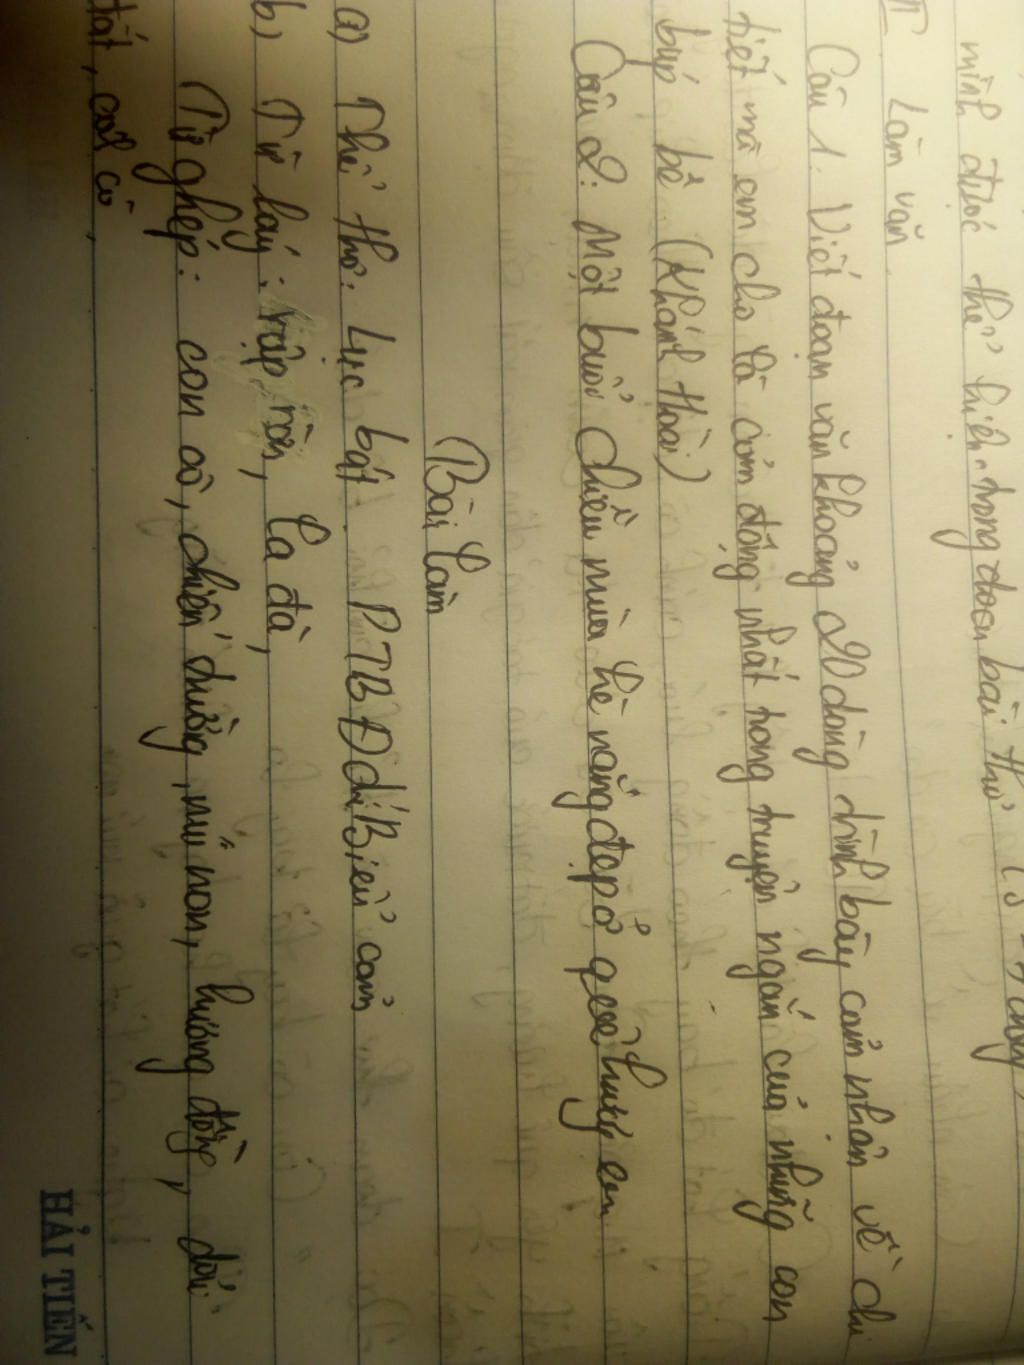 mình được thể hiện trong đoạn bài thơ
II Làm văn
Câu 1. Viết đoạn văn khoảng 20 dòng trình bày cảm nhân về chi
tiết mà em cho là cảm động nhất trong truyện ngắn của những con
búp bê (Khánh Hoài)
Câu 2: Một buổi chiều mùa hè nắng đẹp ở quê hương em
Bài làm
a) Thể thơ: Lục bát PTBĐ: Biểu cảm
b) Từ láy: rập rờn, la đà,
Từ ghép: con cò, chiến trường, núi non, hương đồng,
đất, cát cò,
HẢI TIẾN